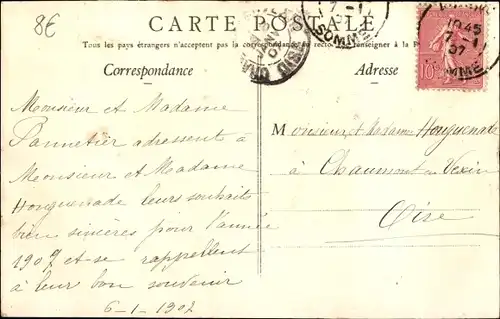 8€
CARTE POSTALE
Tous les pays étrangers n'acceptent pas la correspondance au recto. (Se renseigner à la P
Correspondance
Adresse
7-1
SOMME
JANV
OISE
10 45
7-1
07
SOMME
10
Monsieur et Madame
Pannetier adressent à
Monsieur et Madame
Houguenade leurs souhaits
bien sincères pour l'année
1907 et se rappellent
à leur bon souvenir
6-1-1907
Monsieur et Madame Houguenade
à Chaumont en Vexin
Oise